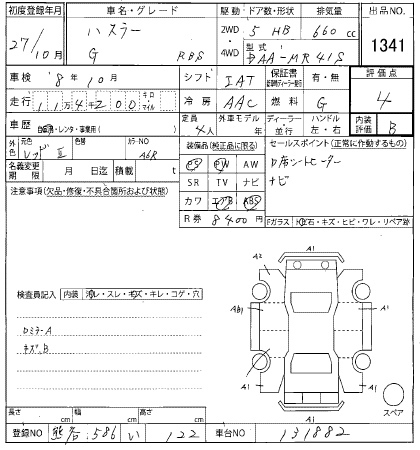 初度登録年月 車名・グレード 駆動 ドア数・形状 排気量 出品NO.
27/10月 ハスラー 2WD 5 HB 660cc 1341
G RBS 4WD 型式 DAA-MR41S
車検 '8年10月 シフト IAT 保証書 有・無 評価点
走行 114200 キロ マイル 冷房 AAC 燃料 G 4
車歴 自家用・レンタ・事業用( ) 定員 4人 外車モデル 年 ディーラー 並行 ハンドル 左・右 内装評価 B
外色 元色 色替 カラーNO A6R 装備品(純正品に限る) セールスポイント(正常に作動するもの)
名義変更期限 月 日迄 積載 t PS PW AW D席シートヒーター
注意事項(欠品・修復・不具合箇所および状態) SR TV ナビ ナビ
カワ エアB ABS
R券 8400円 Fガラス 飛石・キズ・ヒビ・ワレ・リペア跡
A1
A2 A1
検査員記入 内装 汚レ・スレ・キズ・キレ・コゲ・穴
キズB
A1 A1
A1
スペア
長さ cm 幅 cm 高さ cm
登録NO 586 い 122 車台NO 131882